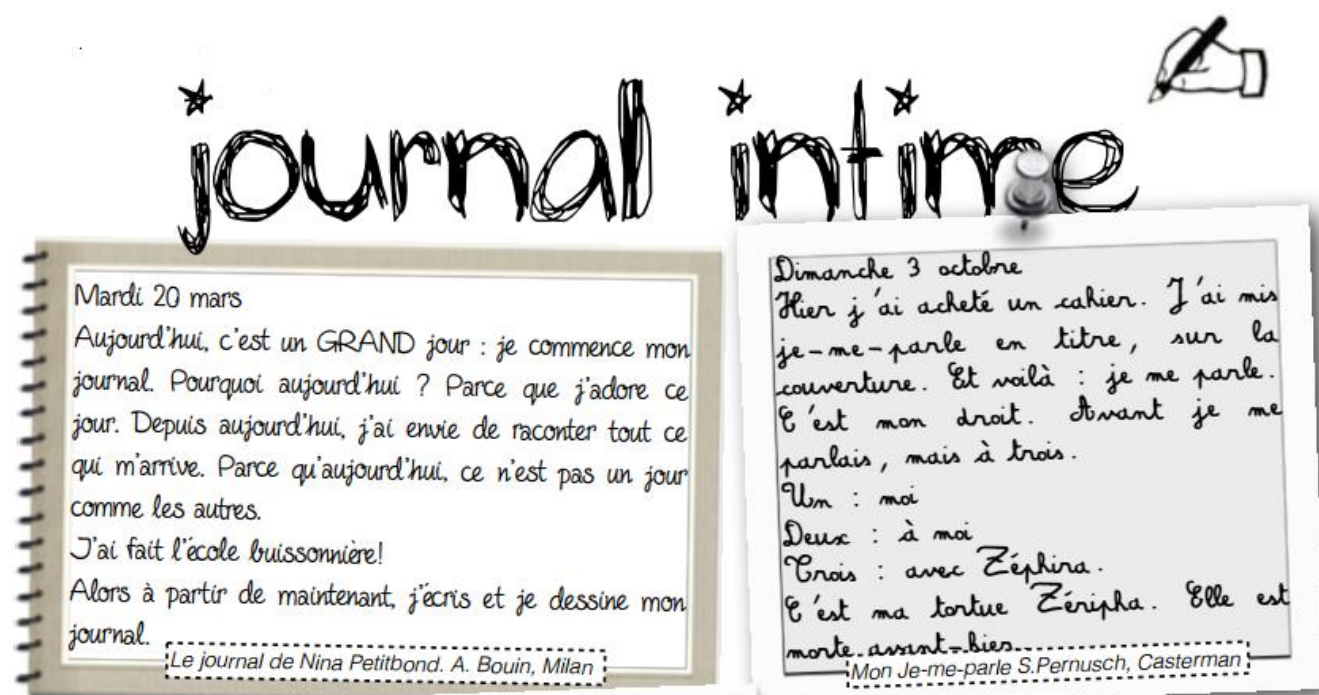 journal intime
Mardi 20 mars
Aujourd'hui, c'est un GRAND jour : je commence mon
journal. Pourquoi aujourd'hui ? Parce que j'adore ce
jour. Depuis aujourd'hui, j'ai envie de raconter tout ce
qui m'arrive. Parce qu'aujourd'hui, ce n'est pas un jour
comme les autres.
J'ai fait l'école buissonnière!
Alors à partir de maintenant, j'écris et je dessine mon
journal.
Le journal de Nina Petitbond. A. Bouin, Milan
Dimanche 3 octobre
Hier j'ai acheté un cahier. J'ai mis
je-me-parle en titre, sur la
couverture. Et voilà : je me parle.
C'est mon droit. Avant je me
parlais, mais à trois.
Un : moi
Deux : à moi
Trois : avec Zéphira.
C'est ma tortue Zéripha. Elle est
morte avant-hier.
Mon Je-me-parle S.Pernusch, Casterman